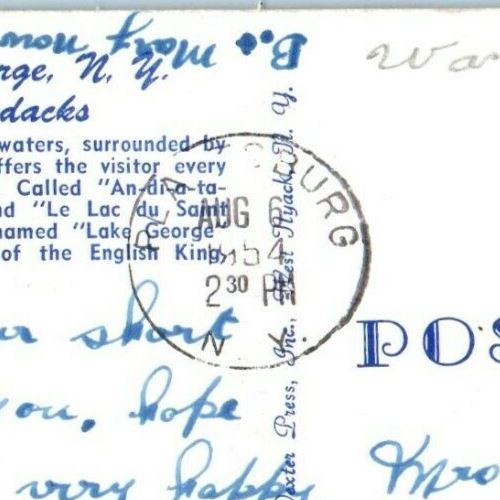 B. Mary now
rge, N. Y.
dacks
waters, surrounded by
ffers the visitor every
Called "An-di-a-ta-
nd "Le Lac du Saint
named "Lake George"
of the English King,
PLA BURG
AUG
1954
2 30 PM
N. Y.
Dexter Press, Inc., West Nyack, N. Y.
War
POS
short
you, hope
very happy
Mro